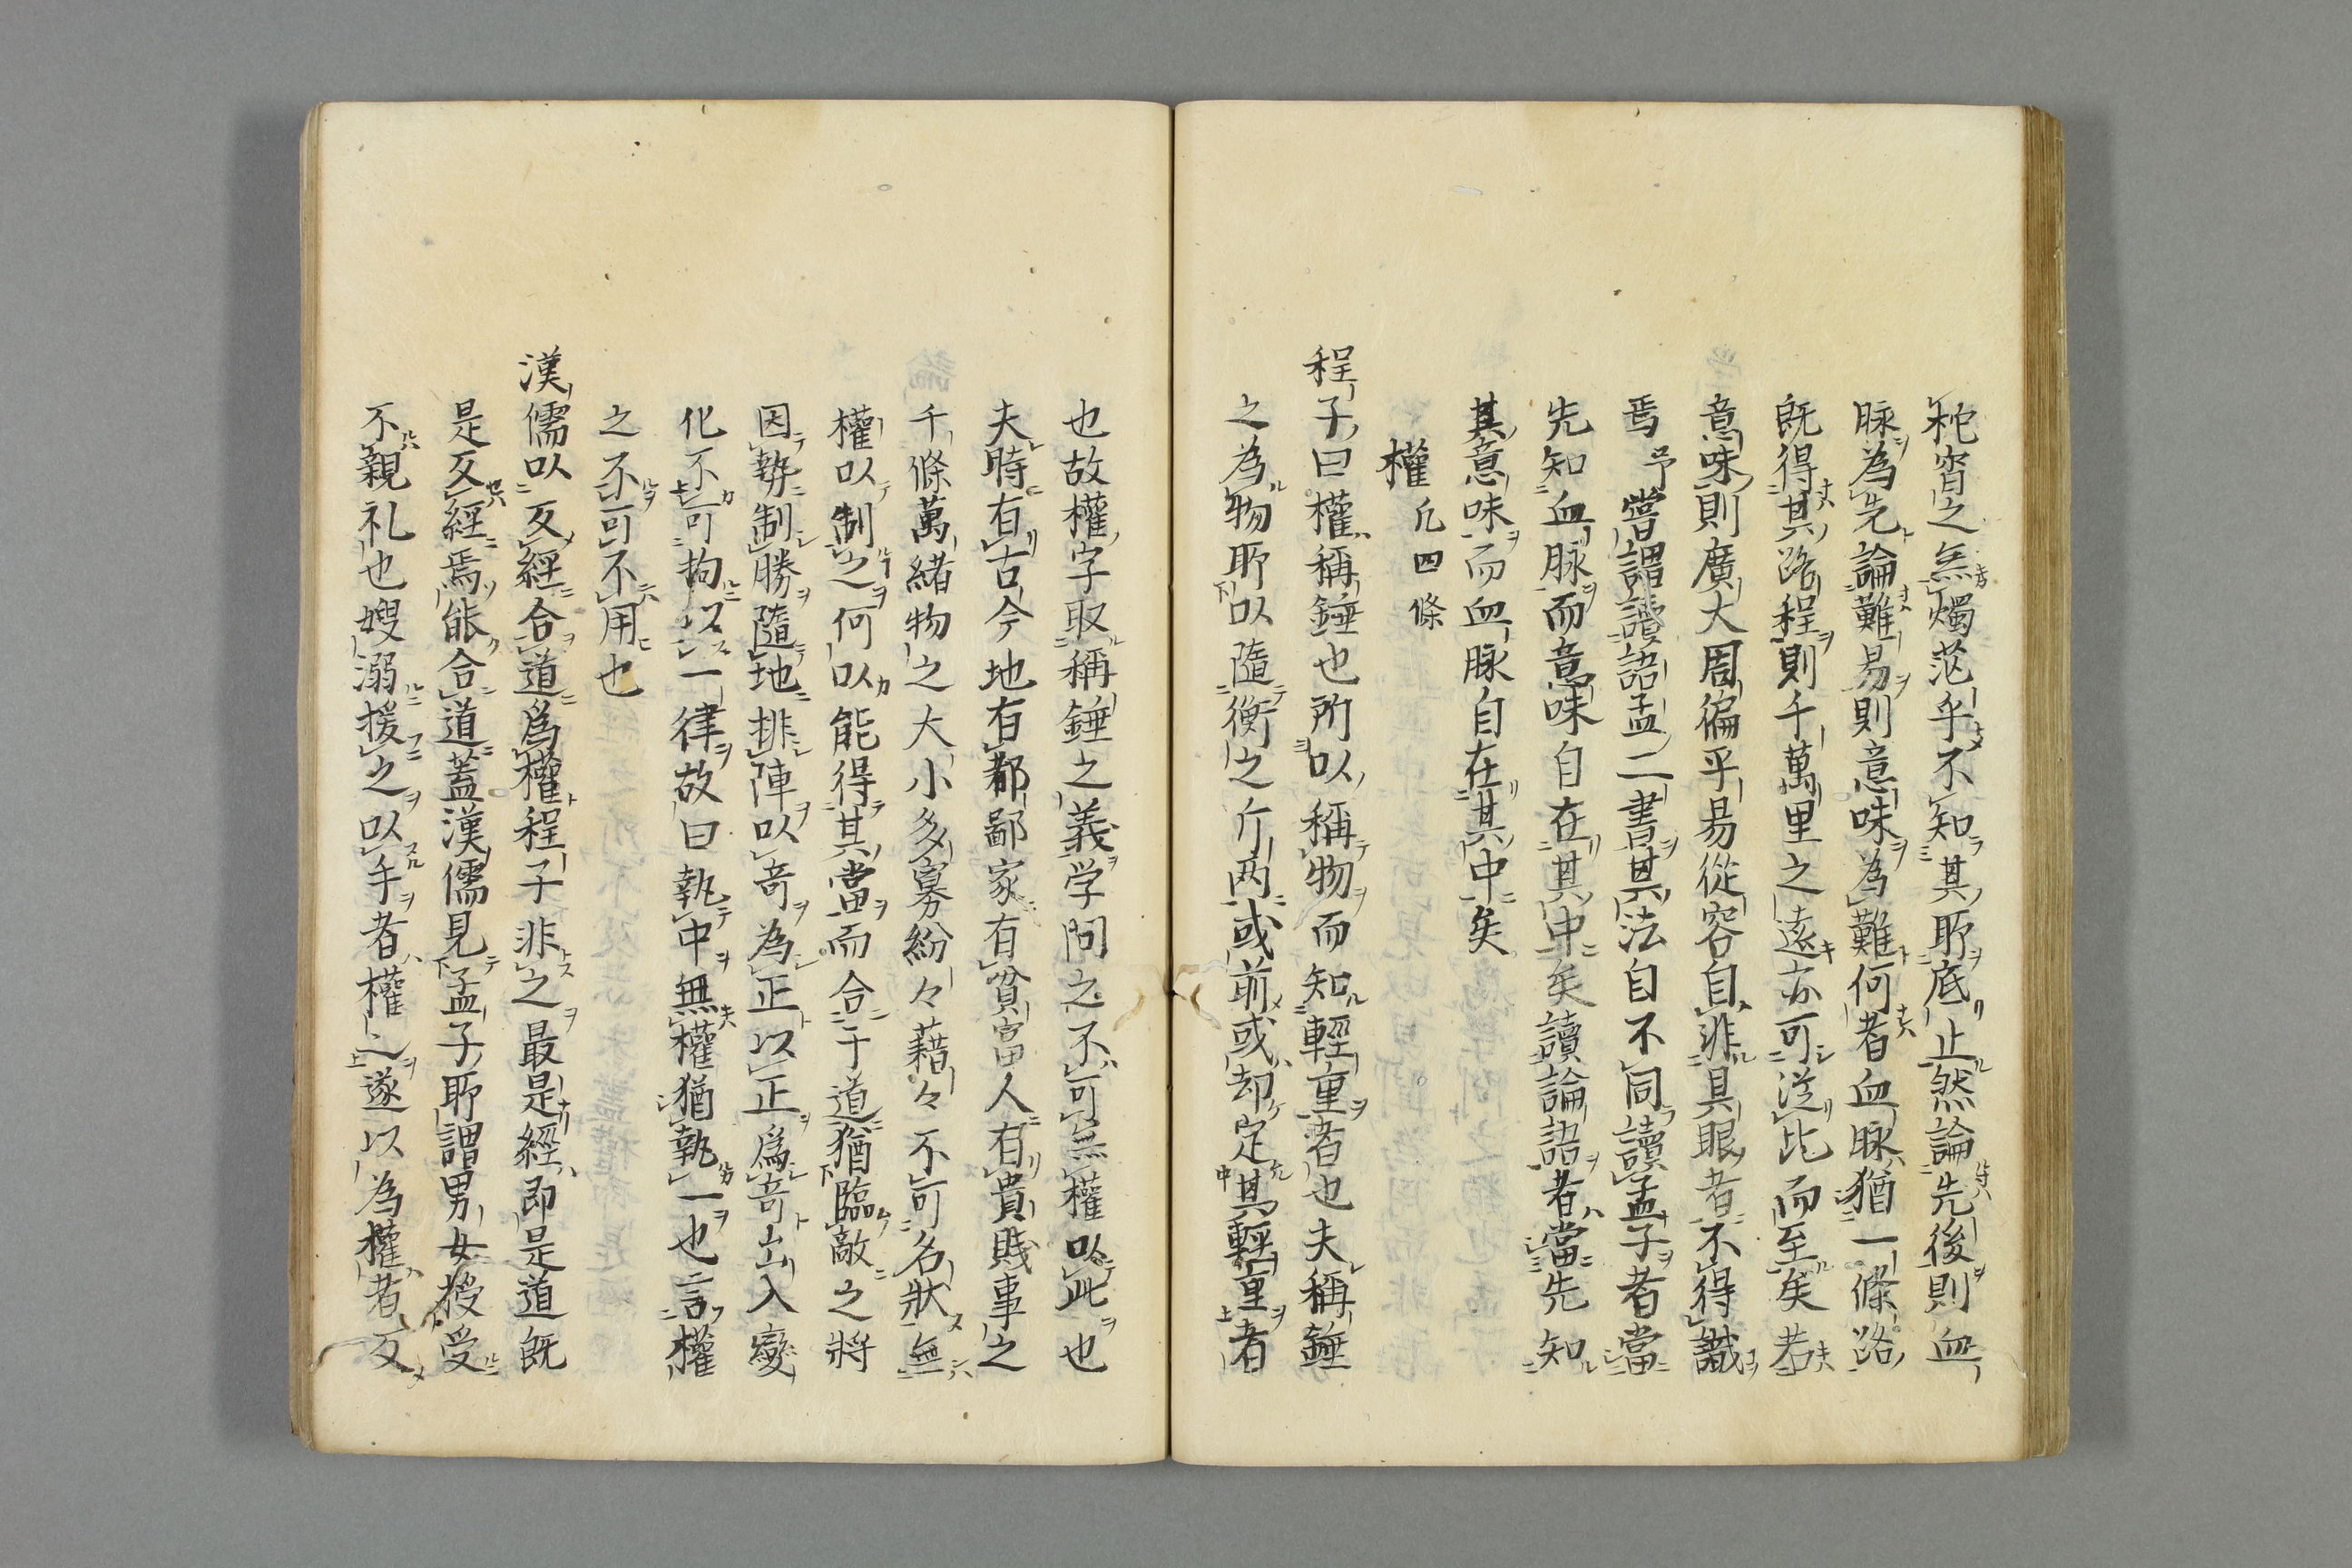 柁宵之無燭茫乎不知其所底止然論先後則血
脉為先論難易則意味為難何者血脉猶一條路
既得其路程則千萬里之遠亦可従此而至矣若
意味則廣大周徧平易從容自非具眼者不得識
焉予嘗謂讀語孟二書其法自不同讀孟子者當
先知血脉而意味自在其中矣讀論語者當先知
其意味而血脉自在其中矣
權 凢四條
程子曰權稱錘也所以稱物而知輕重者也夫稱錘
之為物所以隨衡之斤两或前或却定其輕重者
也故權字取稱錘之義学問之不可無權以此也
夫時有古今地有都鄙家有貧富人有貴賤事之
千條萬緒物之大小多寡紛々藉々不可名狀無
權以制之何以能得其當而合于道猶臨敵之將
因勢制勝隨地排陣以竒為正以正爲竒出入變
化不可拘以一律故曰執中無權猶執一也言權
之不可不用也
漢儒以反經合道爲權程子非之最是經即是道既
是反經焉能合道蓋漢儒見孟子所謂男女授受
不親礼也嫂溺援之以手者權之遂以為權者反